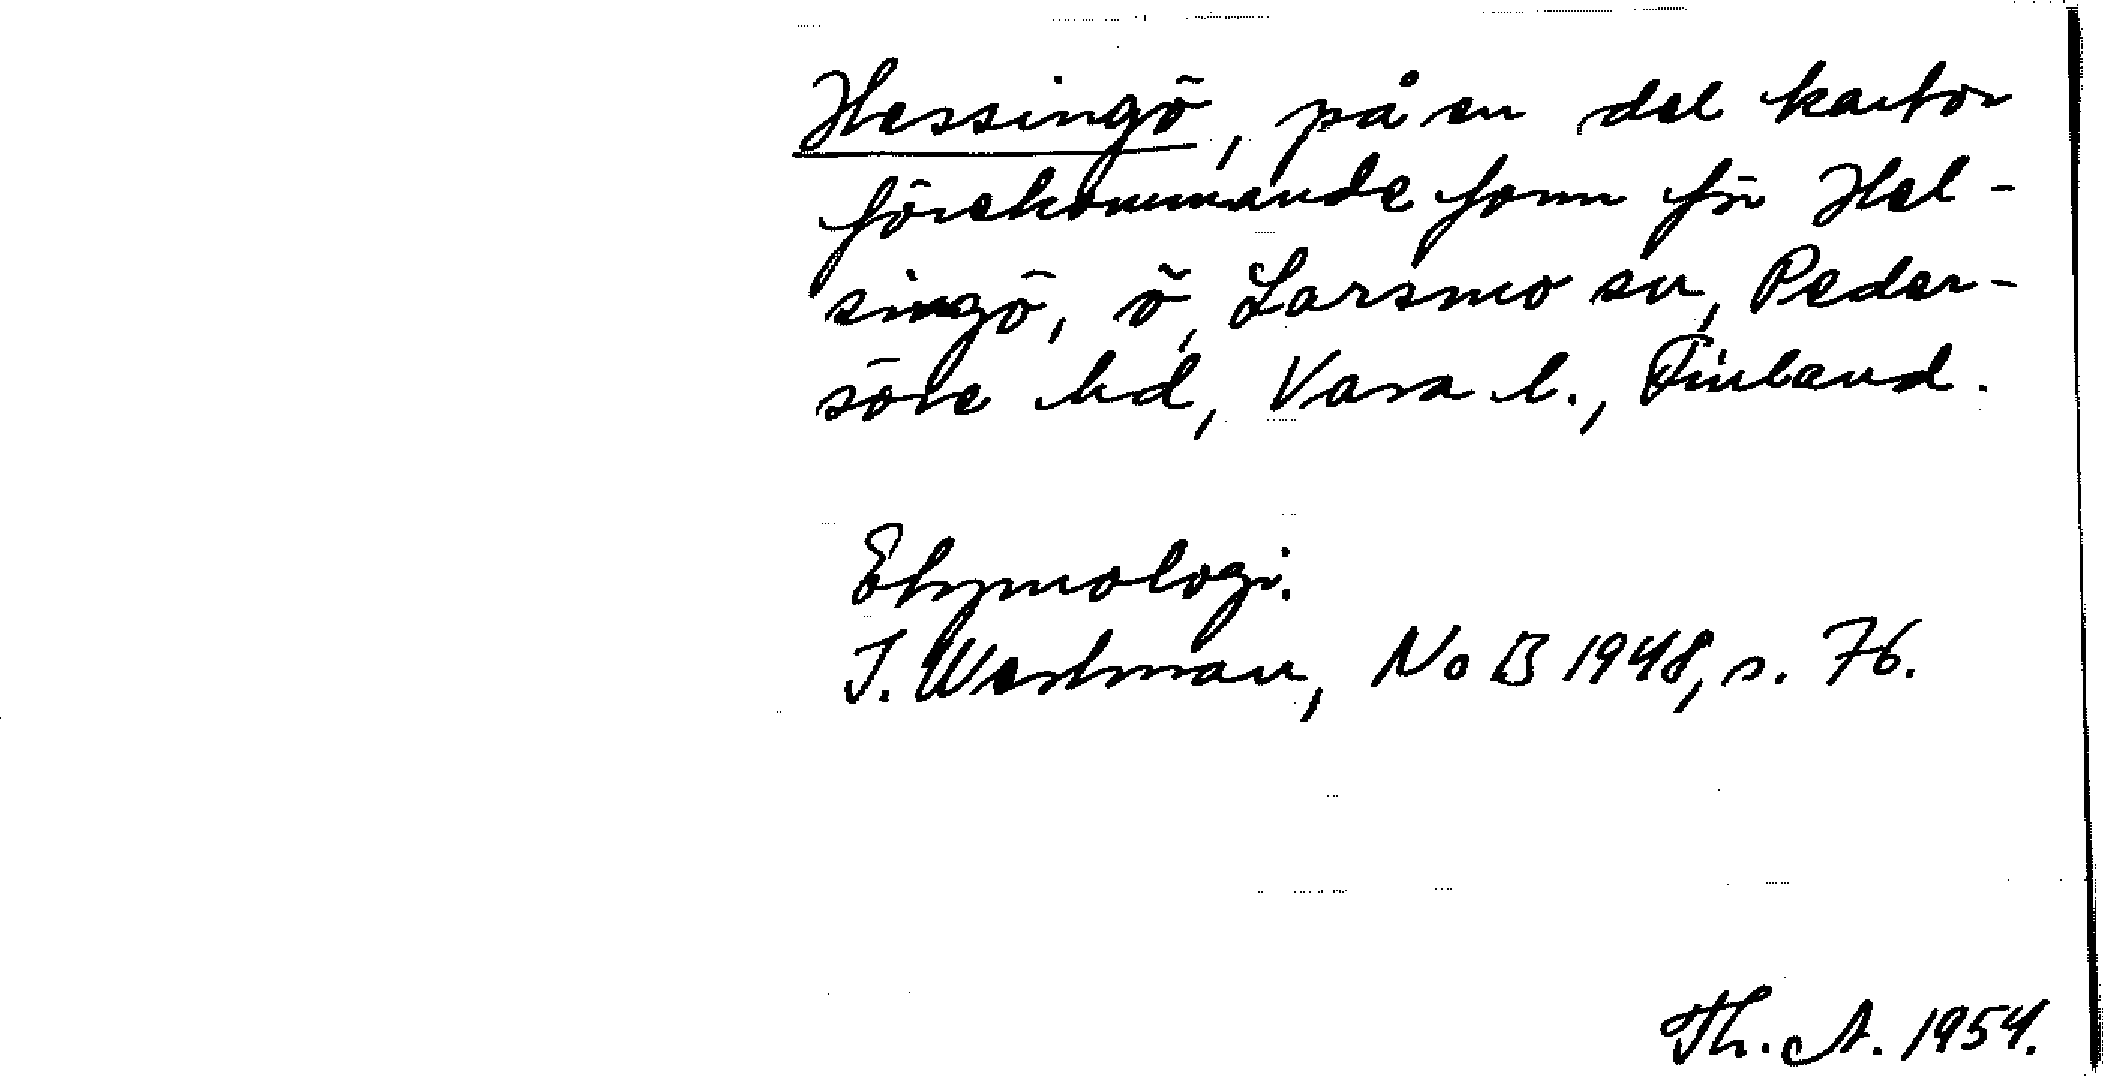 Hessingö, på en del kartor
förekommande form för Hel-
singö, ö, Larsmo sn, Peder-
söre hd, Vasa l., Finland.
Etymologi.
I. Westman, NoB 1948, s. 76.
Th. A. 1954.